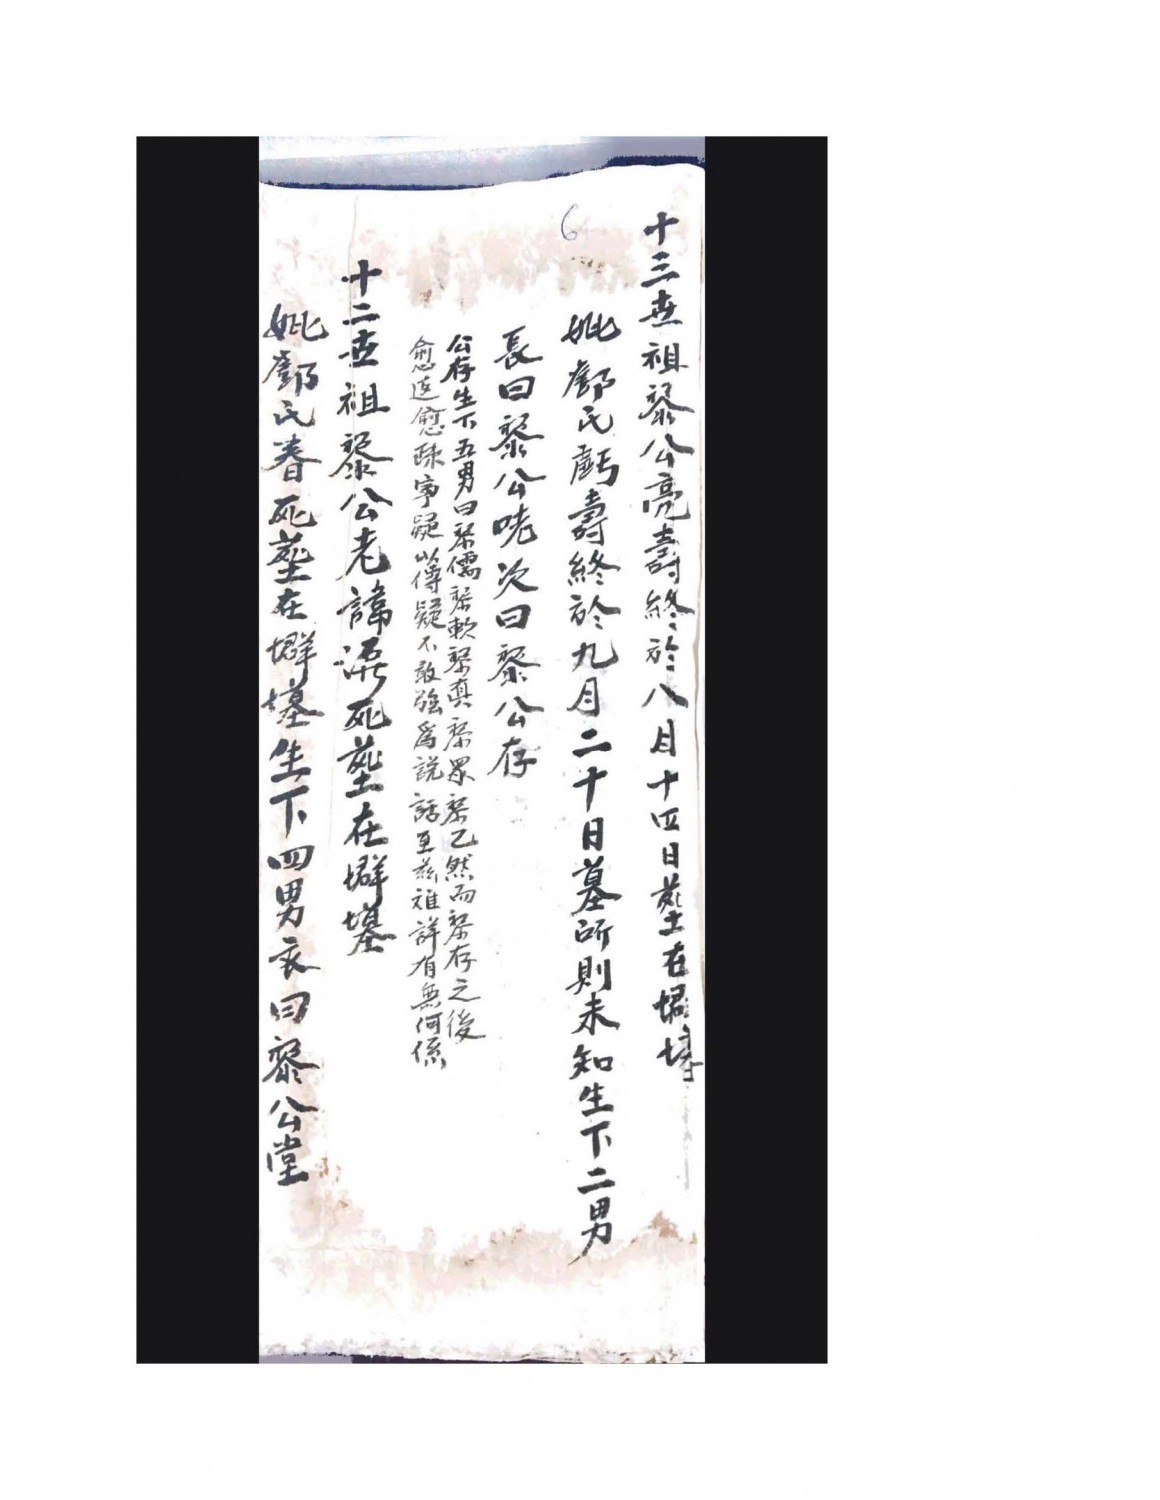 6
十三世祖黎公亮壽終於八月十四日塟在墲墓
妣鄧氏虧壽終於九月二十日墓所則未知生下二男
長曰黎公咾次曰黎公存
公存生下五男曰黎儒黎軟黎真黎眾黎乙然而黎存之後
愈遠愈疎寧疑以傳疑不敢強為說話至玆雖詳有無何係
十二世祖黎公老諱死塟在墲墓
妣鄧氏春死塟在墲墓生下四男衣曰黎公堂